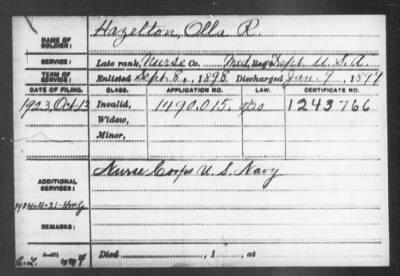 NAME OF SOLDIER: Hazelton, Olla R.
SERVICE: Late rank, Nurse Co. Med. Reg't Dept. U.S.A.
TERM OF SERVICE: Enlisted Sept. 8, 1898. Discharged Jan. 9, 1899
DATE OF FILING. CLASS. APPLICATION NO. LAW. CERTIFICATE NO.
1923, Oct. 13 Invalid, 1490.015. 1243766
Widow,
Minor,
ADDITIONAL SERVICES: Nurse Corps U.S. Navy
REMARKS:
Died , 1 , at